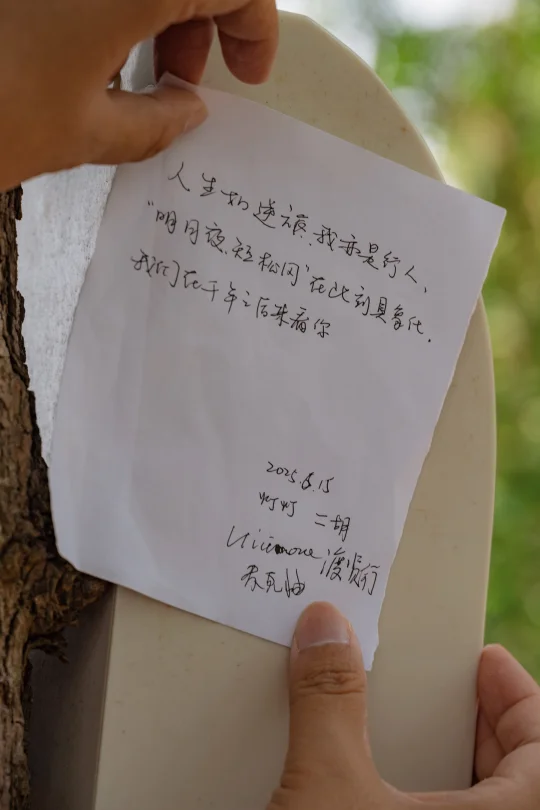 人生如逆旅，我亦是行人，
“明月夜，短松冈”在此刻具象化．
我们在千年之后来看你
2025.6.15
灯灯 二胡